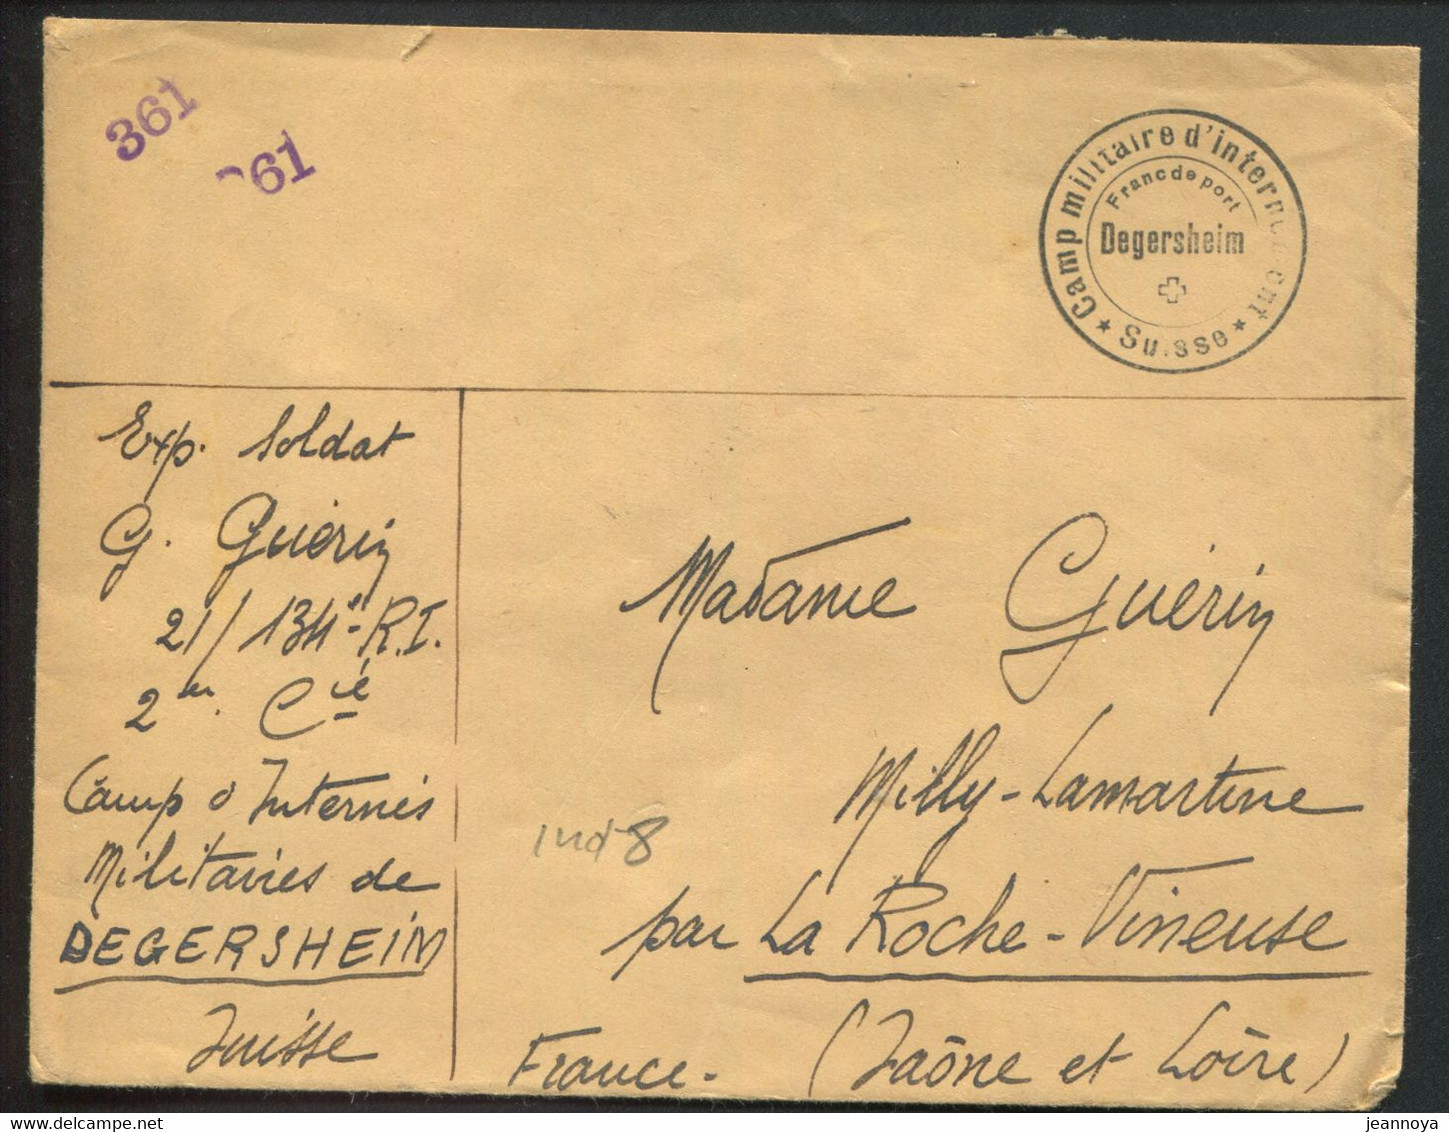 361
361
Camp militaire d'internement
Franc de port
Degersheim
Suisse
Exp. Soldat
G. Guérin
21/134e R.I.
2me Cie
Camp d'Internés
Militaires de
DEGERSHEIM
Suisse
Madame Guérin
Milly-Lamartine
par La Roche-Vineuse
France. (Saône et Loire)
delcampe.net
jeannoya